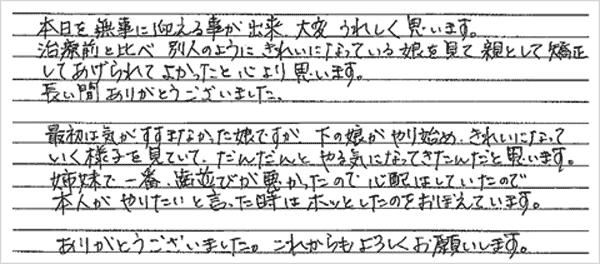 本日を無事に迎える事が出来、大変うれしく思います。
治療前と比べ 別人のように きれいになっている娘を見て 親として矯正
してあげられてよかったと心より思います。
長い間ありがとうございました。
最初は気がすすまなかった娘ですが 下の娘がやり始め、きれいになって
いく様子を見ていて、だんだんと やる気になってきたんだと思います。
姉妹で一番、歯並びが悪かったので 心配はしていたので
本人が やりたいと言った時は ホッとしたのをおぼえています。
ありがとうございました。これからもよろしくお願いします。